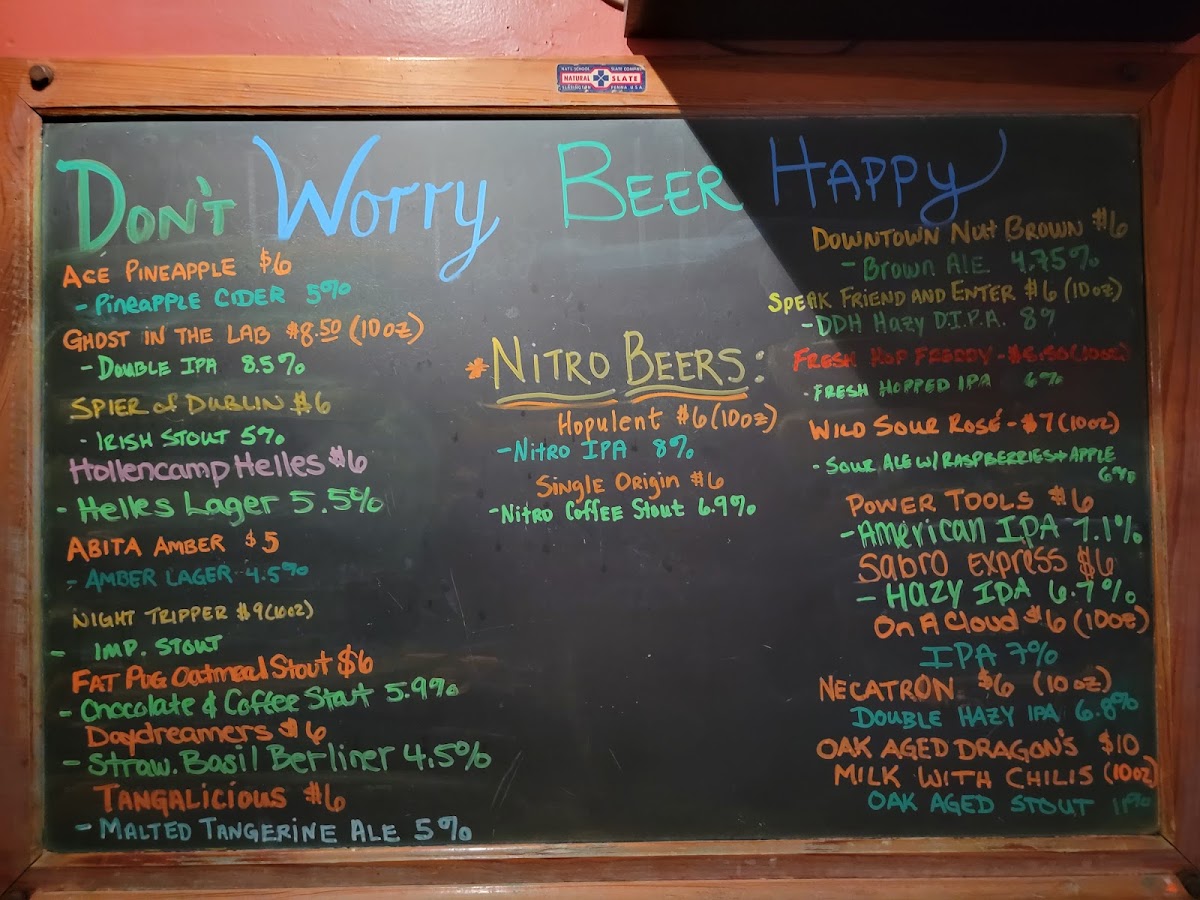 NATURAL SLATE
PENNA. U.S.A.
DON'T WORRY BEER HAPPY
ACE PINEAPPLE $6
- PINEAPPLE CIDER 5%
GHOST IN THE LAB $8.50 (10oz)
- DOUBLE IPA 8.5%
SPIER of DUBLIN $6
- IRISH STOUT 5%
Hollencamp Helles $6
- Helles Lager 5.5%
ABITA AMBER $5
- AMBER LAGER 4.5%
NIGHT TRIPPER $9 (10oz)
- IMP. STOUT
FAT PUG Oatmeal Stout $6
- Chocolate & Coffee Stout 5.9%
Daydreamers $6
- Straw. Basil Berliner 4.5%
TANGALICIOUS $6
- MALTED TANGERINE ALE 5%
*NITRO BEERS:
Hopulent $6 (10oz)
- NITRO IPA 8%
SINGLE ORIGIN $6
- NITRO COFFEE STOUT 6.9%
DOWNTOWN NUT BROWN $6
- BROWN ALE 4.75%
SPEAK FRIEND AND ENTER $6 (10oz)
- DDH HAZY D.I.P.A. 8%
FRESH HOP FREDDY - (10oz)
- FRESH HOPPED IPA 6%
WILD SOUR ROSÉ - $7 (10oz)
- SOUR ALE W/ RASPBERRIES + APPLE
6%
POWER TOOLS $6
- American IPA 7.1%
SABRO EXPRESS $6
- HAZY IPA 6.7%
On A Cloud $6 (10oz)
IPA 7%
NECATRON $6 (10oz)
DOUBLE HAZY IPA 6.8%
OAK AGED DRAGON'S $10
MILK WITH CHILIS (10oz)
OAK AGED STOUT 11%